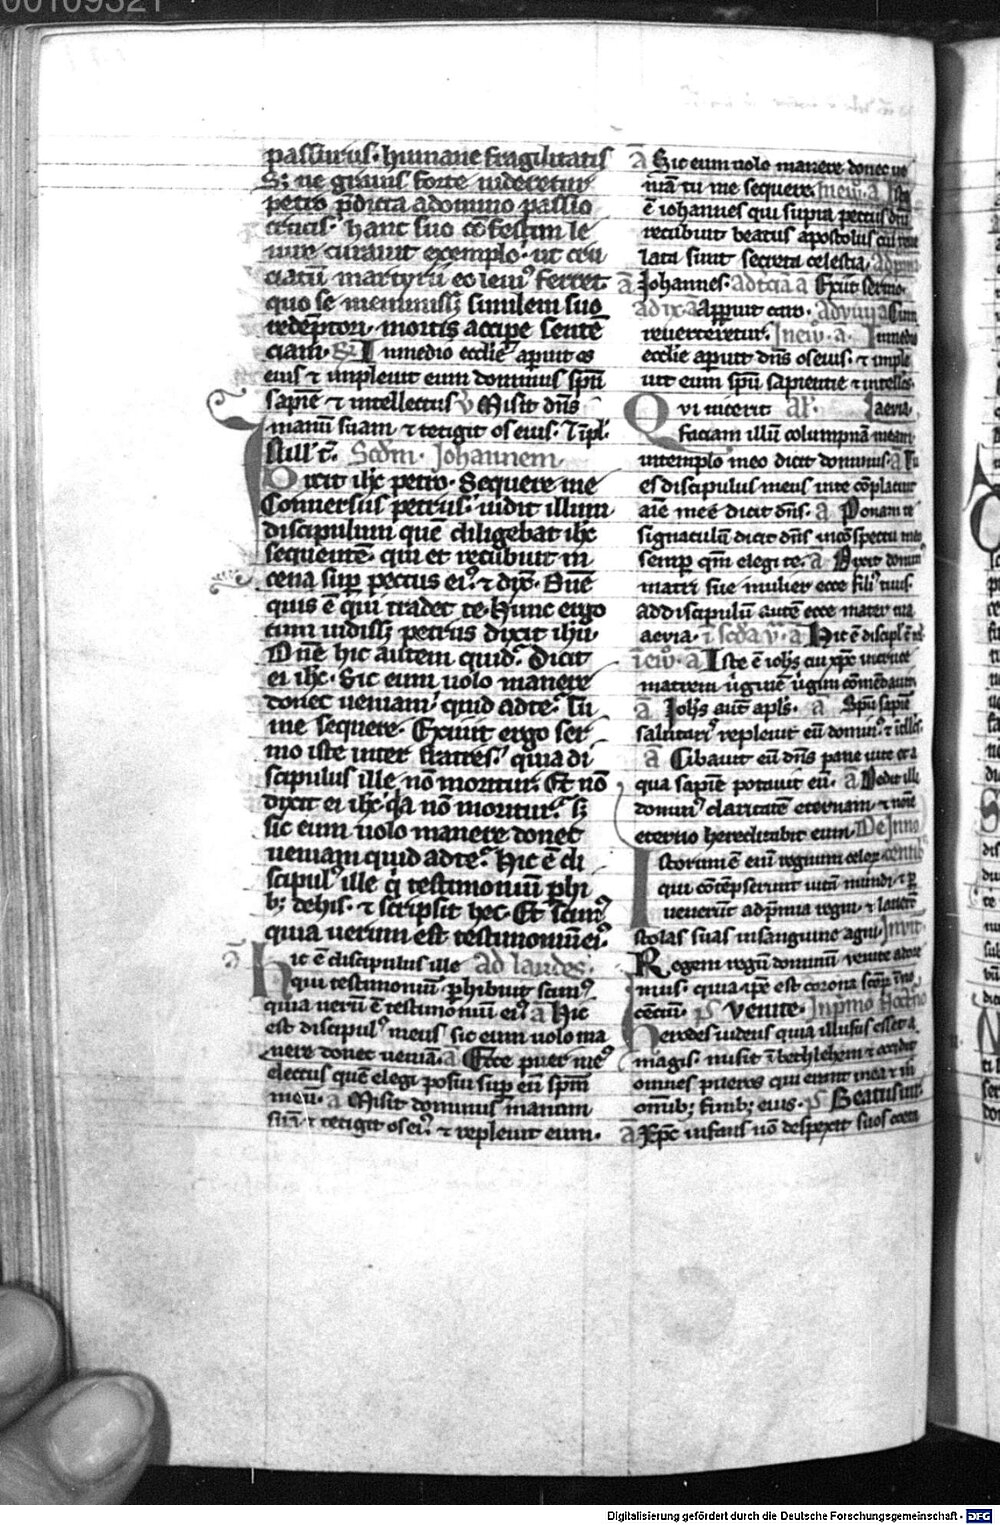 passurus. humane fragilitatis
S; ne grauis forte uideretur
petro p̄dicta a domino passio
crucis. hanc suo cōfestim le
uare curauit exemplo. ut cru
ciatū martyrii eo leuiꝰ ferret
quo se meminissꝫ similem suo
redēptori. mortis accipe sentē
ciam. In medio ecclīe apuit os
eius ⁊ impleuit eum dominus spū
sapīe ⁊ intellectus ℣ Misit dn̄s
manū suam. ⁊ tetigit os eius. ⁊ īpl.
Scdm. Johannem
Dixit ih̄c petro. Sequere me
Conuersus petrus. uidit illum
discipulum quē diligebat ih̄c
sequentē. qui et recubuit in
cena sup̄ pectus eiꝰ. ⁊ dix̄. Dn̄e
quis ē qui tradet te. Hunc ergo
cum uidissꝫ petrus dixit ih̄u.
Dn̄e hic autem quid. Dicit
ei ih̄c. Sic eum uolo manere
donec ueniam. quid ad te. Tu
me sequere. Exiuit ergo ser
mo iste inter fratres. quia di
scipulus ille nō moritur. Et nō
dixit ei ih̄c. qͣa nō moritur. sꝫ
sic eum uolo manere donec
ueniam quid ad te. Hic ē di
scipulꝰ ille qͥ testimoniū phi
bꝫ de his. ⁊ scripsit hec. Et scimꝰ
quia uerum est testimoniū eiꝰ.
Hic ē discipulus ille ad laudes.
qui testimoniū phibuit scimꝰ
quia uerū ē testimoniū eiꝰ a Hic
est discipulꝰ meus sic eum uolo ma
nere donec ueniā. a Ecce puer meꝰ
electus quē elegi posui sup̄ eū spm̄
meū. a Misit dominus manum
suā. ⁊ tetigit os eiꝰ. ⁊ repleuit eum.
a Sic eum uolo manere donec ue
niā tu me sequere. a Iste
ē iohannes qui supra pectus dn̄i
recubuit beatus apostolus cui reue
lata sunt secreta celestia.
a Johannes. ad tcīa a Exiit sermo
a Apparuit caro. Cum
reuerteretur. a. In medio
ecclīe aperuit dn̄s os eius. ⁊ imple
uit eum spū sapientie ⁊ intellec
Qui uicerit aeuia.
Faciam illū columpnā meam
in templo meo dicit dominus. a Tu
es discipulus meus in te cōplacuit
aīe mee dicit dn̄s. a Ponam te
signaculū dicit dn̄s in cōspectu meo
semp̄ qm̄ elegi te. a Dixit dominꝰ
matri sue mulier ecce filiꝰ tuus.
ad discipulū autē ecce mater tua
aeuia. a Hic ē discipl
a Iste ē ioh̄s cui xp̄c in cruce
matrem uirginē uirgini cōmendauit
a Joh̄s aut apl̄s. a Spū sapīe
salutariꝰ repleuit eū dominꝰ ⁊ itllc̄
a Cibauit eū dn̄s pane uite ⁊ a
qua sapīe potauit eū. a Dedit illi
dominꝰ claritatē eternam ⁊ noīe
eterno hereditabit eum. De Inno
Istorum ē enī regnum celoꝝ centibꝰ
qui cōtēpserunt uitā mundi ⁊ p
uenerūt ad p̄mia regni ⁊ lauerūt
stolas suas in sanguine agni. Inuit
Regem regū dominū uenite adore
mus. quia ip̄e est corona scōꝝ inno
cēciū. ps Venite. In p̄mo noctno
Herodes uidens quia illusus esset a
magis. misit ī bethlehem ⁊ occidit
omnes pueros qui erant in ea ⁊ in
omībꝫ finibꝫ eius. ps Beatus uir.
a Xp̄c infans nō despexit suos coeta